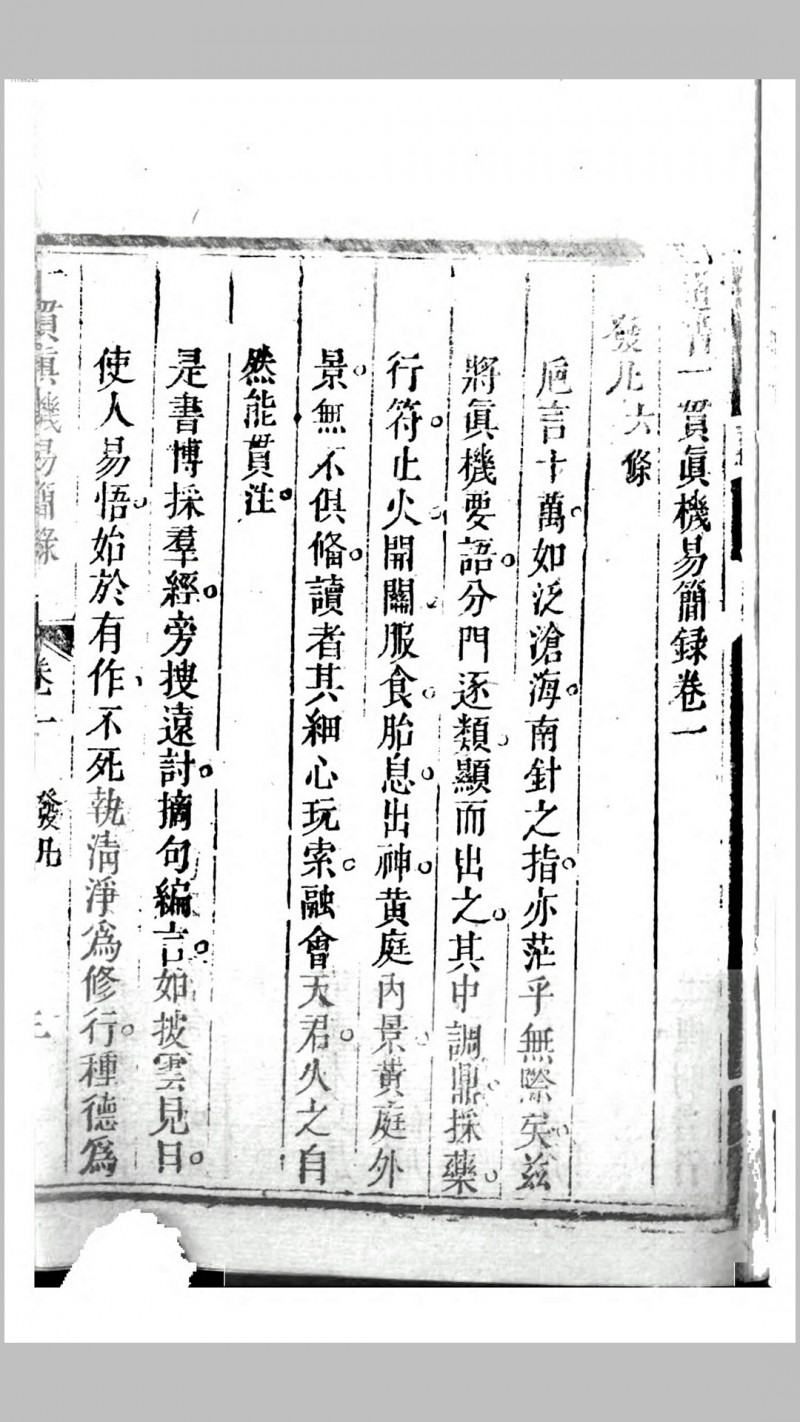 一貫眞機易簡録卷一
發凡六條
巵言十萬。如泛滄海。南針之指。亦茫乎無際矣。兹
將眞機要語。分門逐類。顯而出之。其中調鼎。採藥。
行符。止火。開關。服食。胎息。出神。黄庭内景。黄庭外
景。無不俱俻。讀者其細心玩索。融會天君。久之自
然能貫注。
是書博採羣經。旁搜遠討。摘句編言。如披雲見日。
使人易悟。始於有作、不死執清淨爲修行。種德爲
一貫眞機易簡錄
卷一
發凡
三